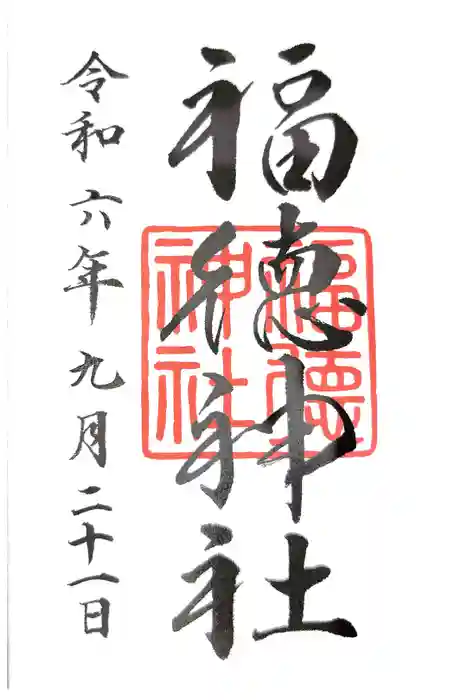 福徳神社
福徳
神社
令和六年九月二十一日